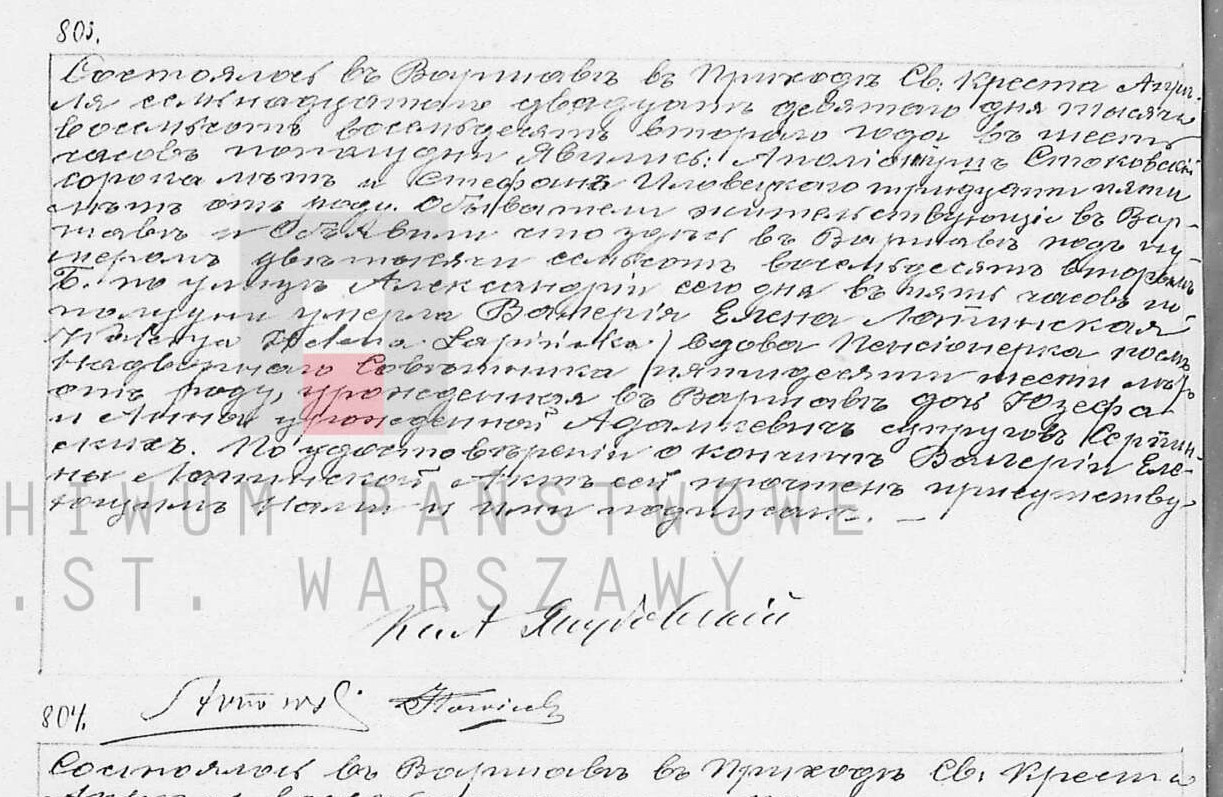 803.
Состоялось въ Варшавѣ въ Приходѣ Св. Креста Апрѣ-
ля семнадцатаго двадцать девятаго дня тысяча
восемьсотъ восемьдесятъ втораго года въ шесть
часовъ пополудни Явились: Аполіонушъ Стоковскій
сорока лѣтъ и Стефанъ тридцати пяти
лѣтъ отъ роду. Обыватели жительствующіе въ Вар-
шавѣ и Объявили что здѣсь въ Варшавѣ подъ ну
меромъ двѣ тысячи семьсотъ восемьдесятъ вторымъ
Б. по улицѣ Александріи сего дня въ пять часовъ по
полудни умерла Валерія Елена Лапинская
Helena Łapińska / вдова Пенсіонерка послѣ
Надворнаго Совѣтника / пятидесяти шести лѣтъ
отъ роду, урожденная въ Варшавѣ дочь Юзефа
и Анны урожденной Адамкевичъ супруговъ
скихъ. По удостовѣреніи о кончинѣ Валеріи Еле-
ны Лапинской Актъ сей прочтенъ присутству-
ющимъ Нами и ими подписанъ. —
HIWUM PAŃSTWOWE
.ST. WARSZAWY
804.
Состоялось въ Варшавѣ въ Приходѣ Св. Креста